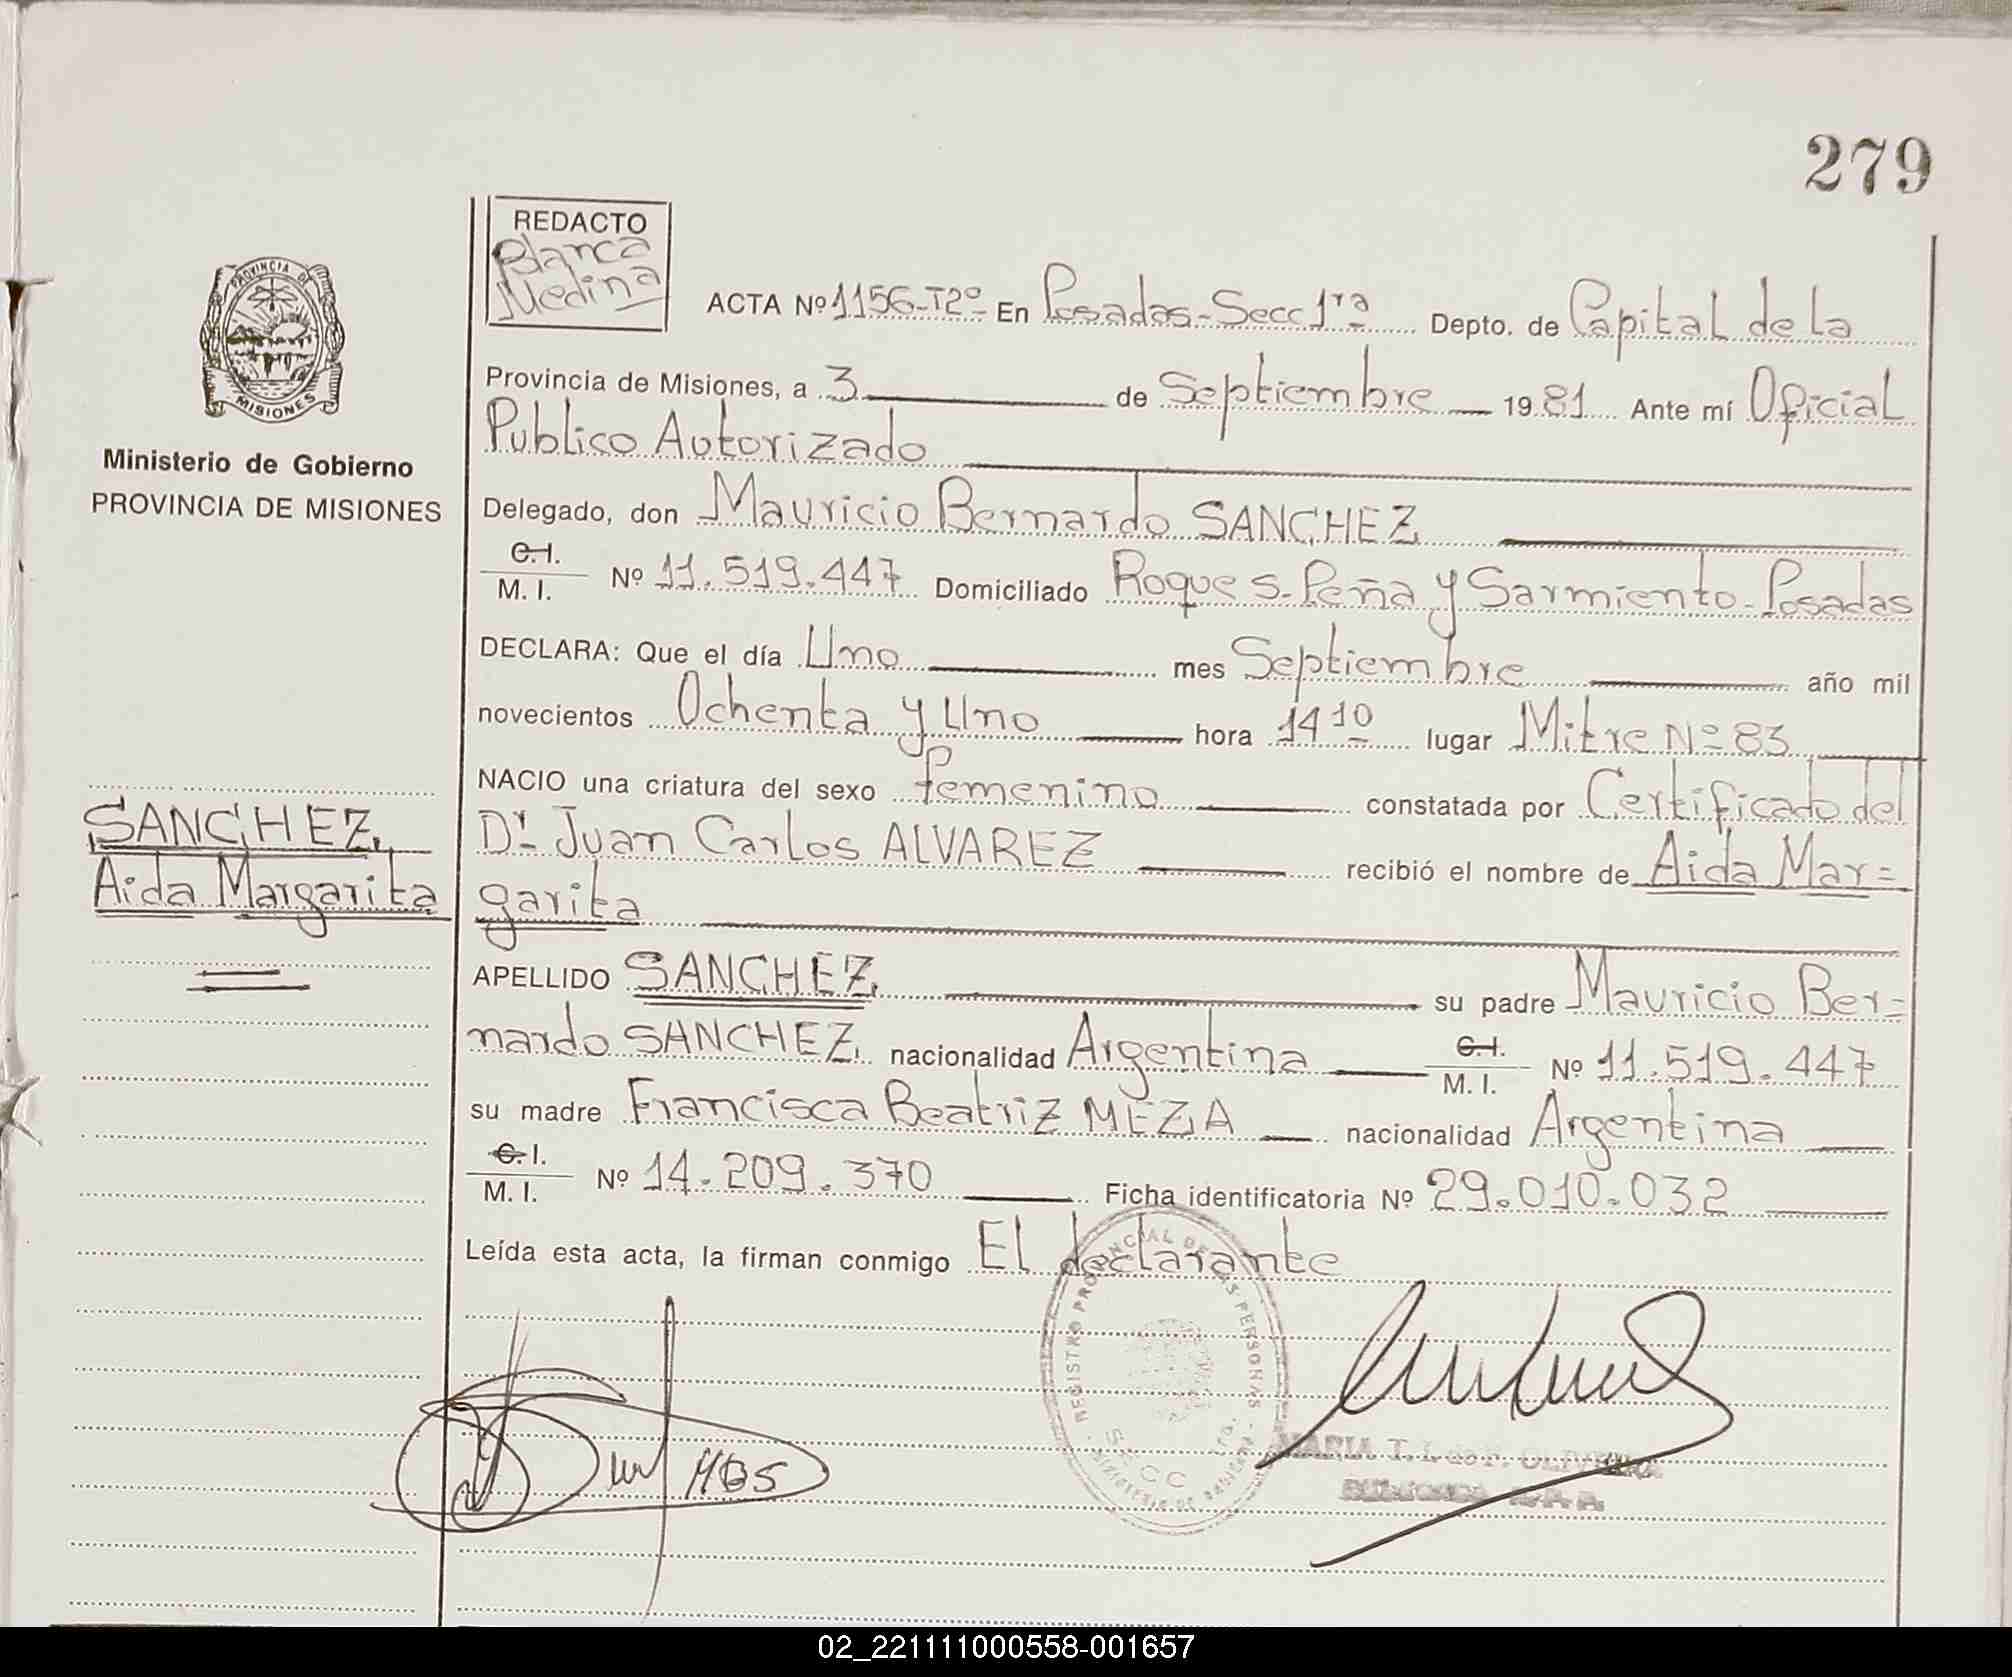 279
REDACTO
Blanca
Medina
PROVINCIA DE
MISIONES
Ministerio de Gobierno
PROVINCIA DE MISIONES
ACTA Nº 1156-T2º- En Posadas-Secc 1ra Depto. de Capital de la
Provincia de Misiones, a 3 de Septiembre 1981 Ante mí Oficial
Publico Autorizado
Delegado, don Mauricio Bernardo SANCHEZ
C.I.
M. I. Nº 11.519.447 Domiciliado Roque S. Peña y Sarmiento-Posadas
DECLARA: Que el día Uno mes Septiembre año mil
novecientos Ochenta y Uno hora 14 10 lugar Mitre Nº 83
NACIO una criatura del sexo femenino constatada por Certificado del
Dr. Juan Carlos ALVAREZ recibió el nombre de Aida Mar=
garita
SANCHEZ,
Aida Margarita
APELLIDO SANCHEZ, su padre Mauricio Ber=
nardo SANCHEZ, nacionalidad Argentina C.I.
M. I. Nº 11.519.447
su madre Francisca Beatriz MEZA nacionalidad Argentina
C.I.
M. I. Nº 14.209.370 Ficha identificatoria Nº 29.010.032
Leída esta acta, la firman conmigo El declarante
REGISTRO PROVINCIAL DE LAS PERSONAS
SECC 1ra.
MBS
MARIA T. I. de F. OLIVEIRA
02_221111000558-001657